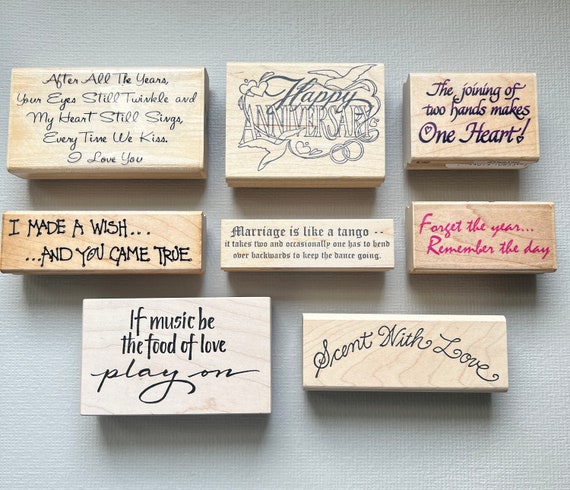 After All The Years,
Your Eyes Still Twinkle and
My Heart Still Sings,
Every Time We Kiss.
I Love You
Happy
ANNIVERSARY
The joining of
two hands makes
One Heart!
I MADE A WISH...
...AND YOU CAME TRUE
Marriage is like a tango --
it takes two and occasionally one has to bend
over backwards to keep the dance going.
Forget the year...
Remember the day
If music be
the food of love
play on
Scent With Love